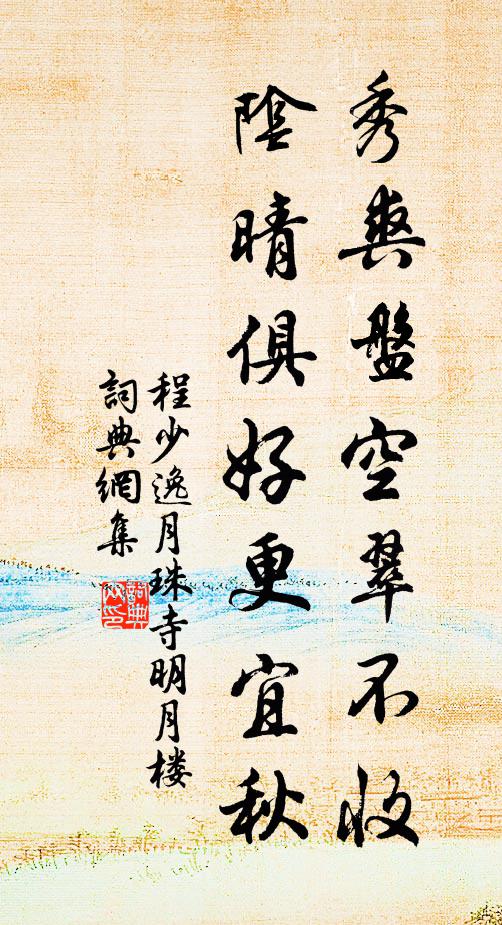 秀爽盤空翠不收
陰晴俱好更宜秋
程少逸月珠寺明月楼
詞典網集